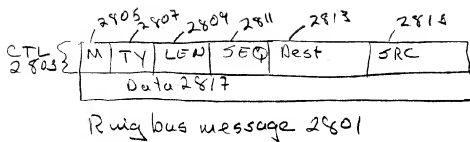 2805 2807 2809 2811 2813 2815
CTL M TY LEN SEQ Dest SRC
2803
Data 2817
Ring bus message 2801